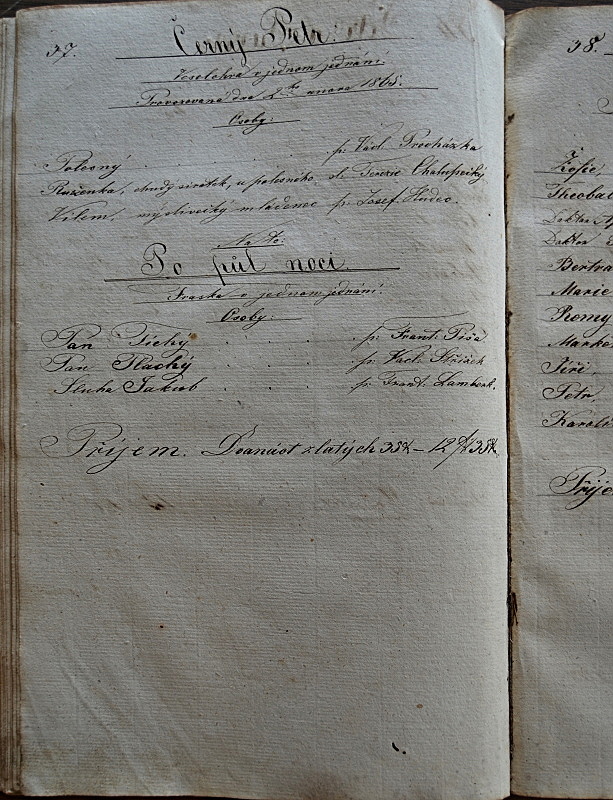 37.
Černý Petr.
Veselohra v jednom jednání.
Provozovaná dne 2ho února 1865.
Osoby:
Polesný . . . p. Václ. Procházka
Růženka, chudý sirotek, u polesného. sl. Terezie Chalupecký.
Vilém, myslivecký mládenec p. Josef Hudec.
Na to:
Po půl noci.
Fraska v jednom jednání
Osoby:
Pan Tichý . . . p. Frant. Píša
Pan Plachý . . . p. Václ. Střížek
Sluha Jakub . . . p. Frant. Lambert.
Příjem. Dvanáct zlatých 35 x – 12 f 35 x
38.
Žofie,
Theobal
Doktor
Doktor
Bertra
Marie
Remy
Marke
Jiří
Petr,
Karolí
Příje